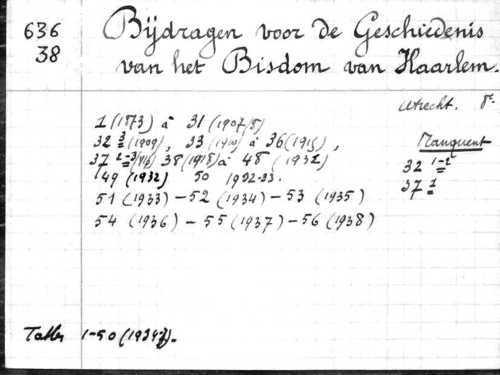 636
38
Bijdragen voor de Geschiedenis
van het Bisdom van Haarlem.
Utrecht. 8º.
1 (1873) à 31 (1907/8)
32 3 (1909), 33 (1910) à 36 (1915),
37 2-3 38 (1918) à 48 (1931)
49 (1932) 50 1932-33.
51 (1933) – 52 (1934) – 53 (1935)
54 (1936) – 55 (1937) – 56 (1938)
Manquent
32 1-2
37 1
Tables 1-50